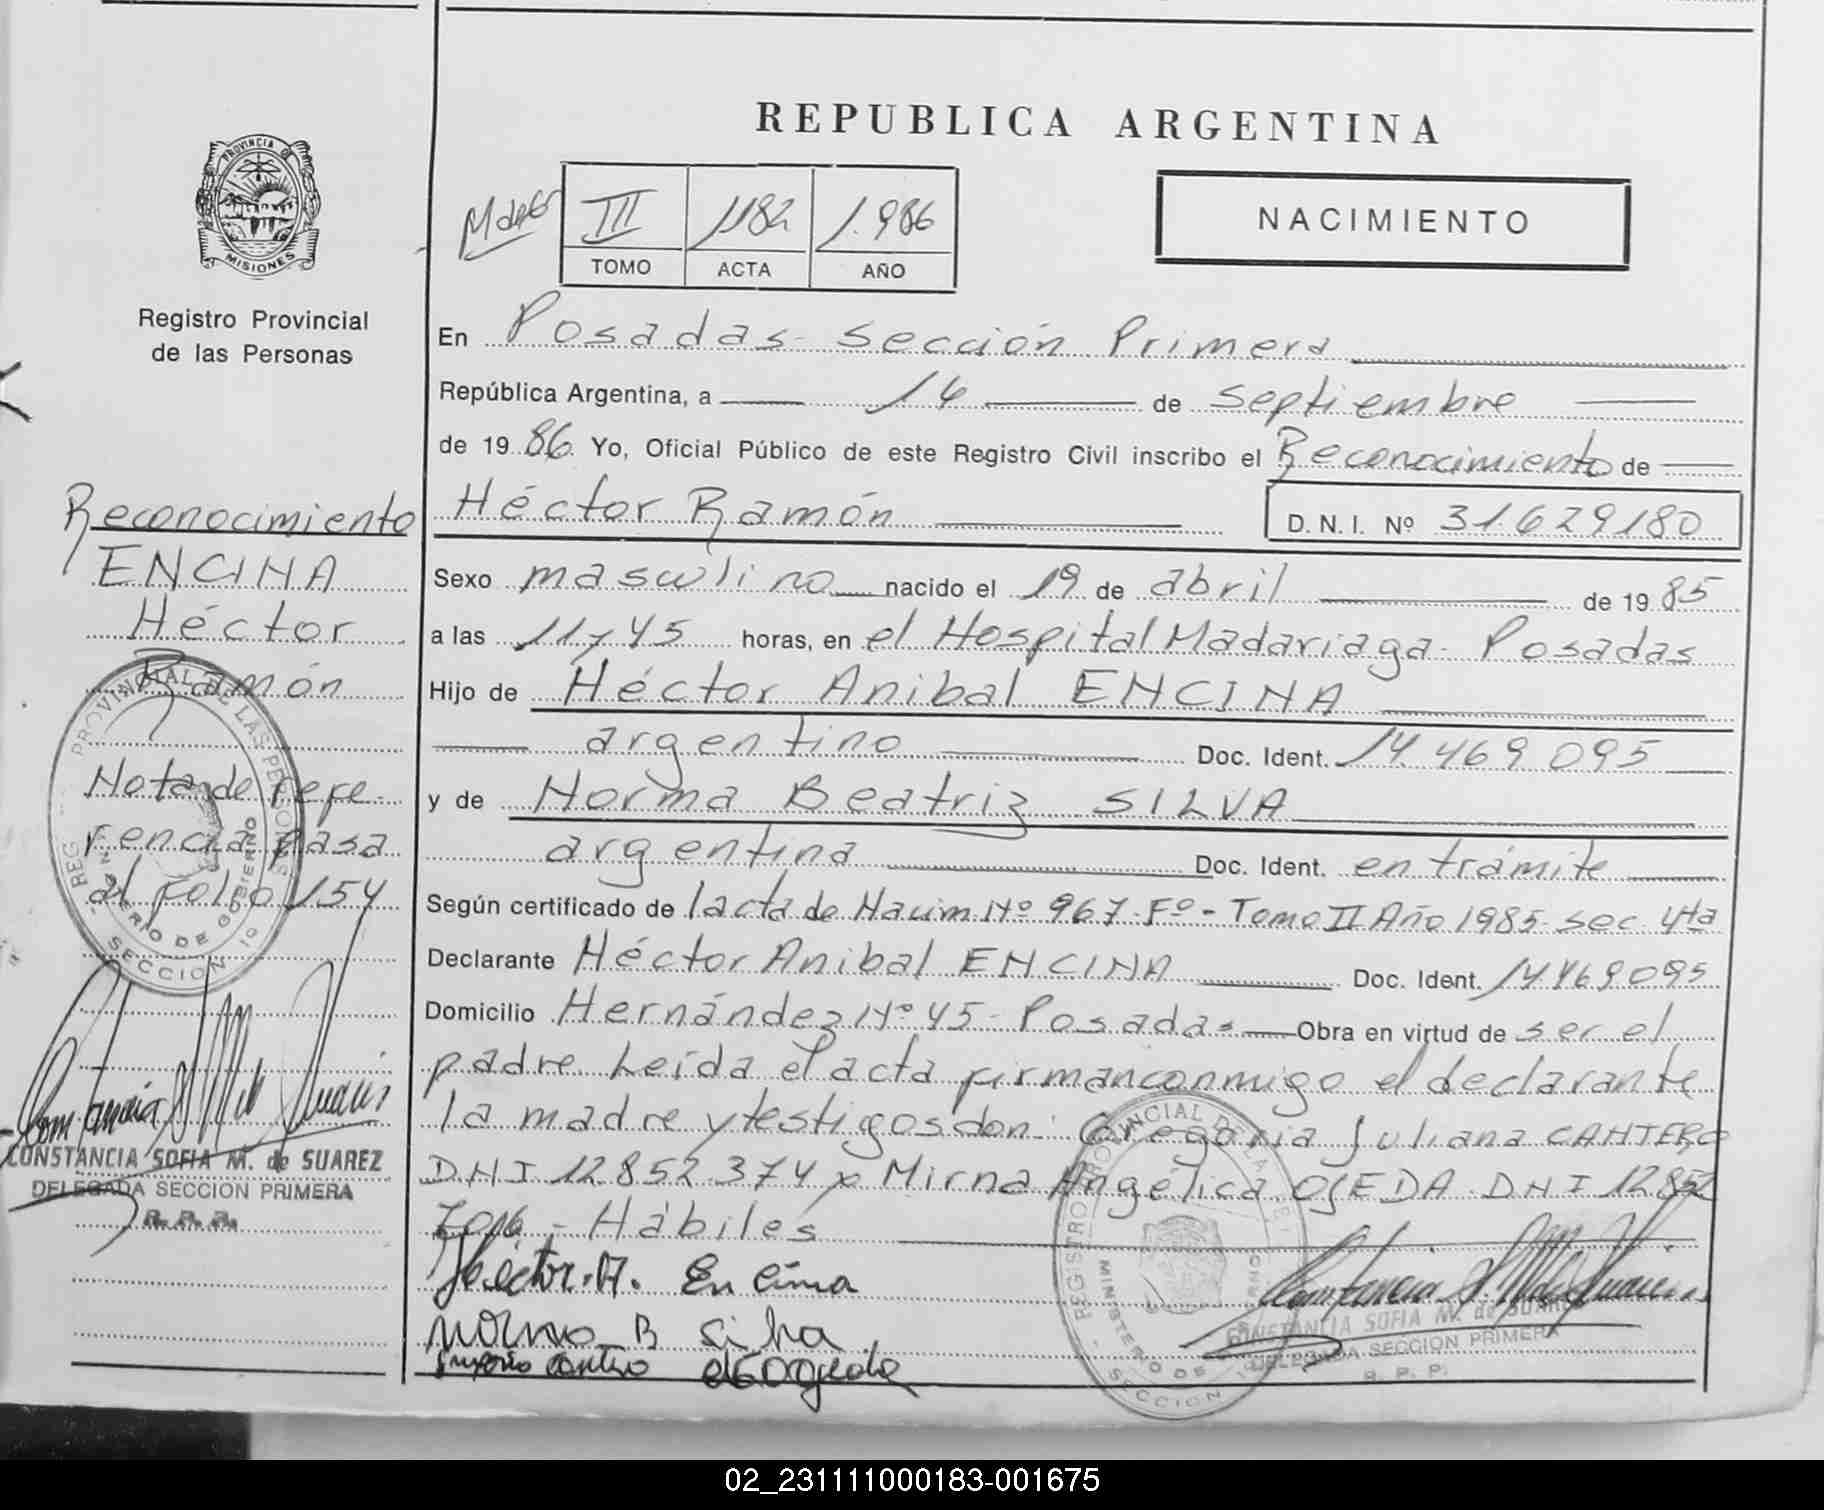 REPUBLICA ARGENTINA
PROVINCIA DE
MISIONES
Registro Provincial
de las Personas
III 1182 1.986
TOMO ACTA AÑO
NACIMIENTO
En Posadas - Sección Primera
República Argentina, a 16 de septiembre
de 19 86. Yo, Oficial Público de este Registro Civil inscribo el Reconocimiento de
Héctor Ramón D.N.I. Nº 31.629180
Sexo masculino nacido el 19 de abril de 19 85
a las 11 y 45 horas, en el Hospital Madariaga - Posadas
Hijo de Héctor Anibal ENCINA
argentino Doc. Ident. 14.469.095
y de Norma Beatriz SILVA
argentina Doc. Ident. en trámite
Según certificado de l acta de Nacim Nº 967 - Fº - Tomo II Año 1985 - sec. 4ta
Declarante Héctor Anibal ENCINA Doc. Ident. 14469095
Domicilio Hernández Nº 45 - Posadas Obra en virtud de ser el
padre. Leída el acta firman conmigo el declarante
la madre y testigos don: Gregoria Juliana CANTERO
DNI 12.852.374 y Mirna Angélica OJEDA DNI 12.852
- Hábiles
Héctor. A. Encina
Norma B Silva
CONSTANCIA SOFIA M. de SUAREZ
DELEGADA SECCION PRIMERA
R. P. P.
Reconocimiento
ENCINA
Héctor
Ramón
Nota de refe-
rencia pasa
al folio 154
CONSTANCIA SOFIA M. de SUAREZ
DELEGADA SECCION PRIMERA
R. P. P.
02_231111000183-001675